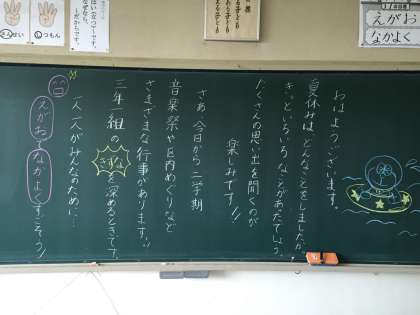 えがお
なかよく
おはようございます。
夏休みは、どんなことをしましたか。
きっといろいろなことがあったでしょう。
たくさんの思い出を聞くのが
楽しみです!!
さあ、今日から二学期
音楽祭や区内めぐりなど
さまざまな行事があります!!
三年一組のきずなを深めるときです。
一人一人がみんなのために…
えがおでなかよくすごそう!
しつもん